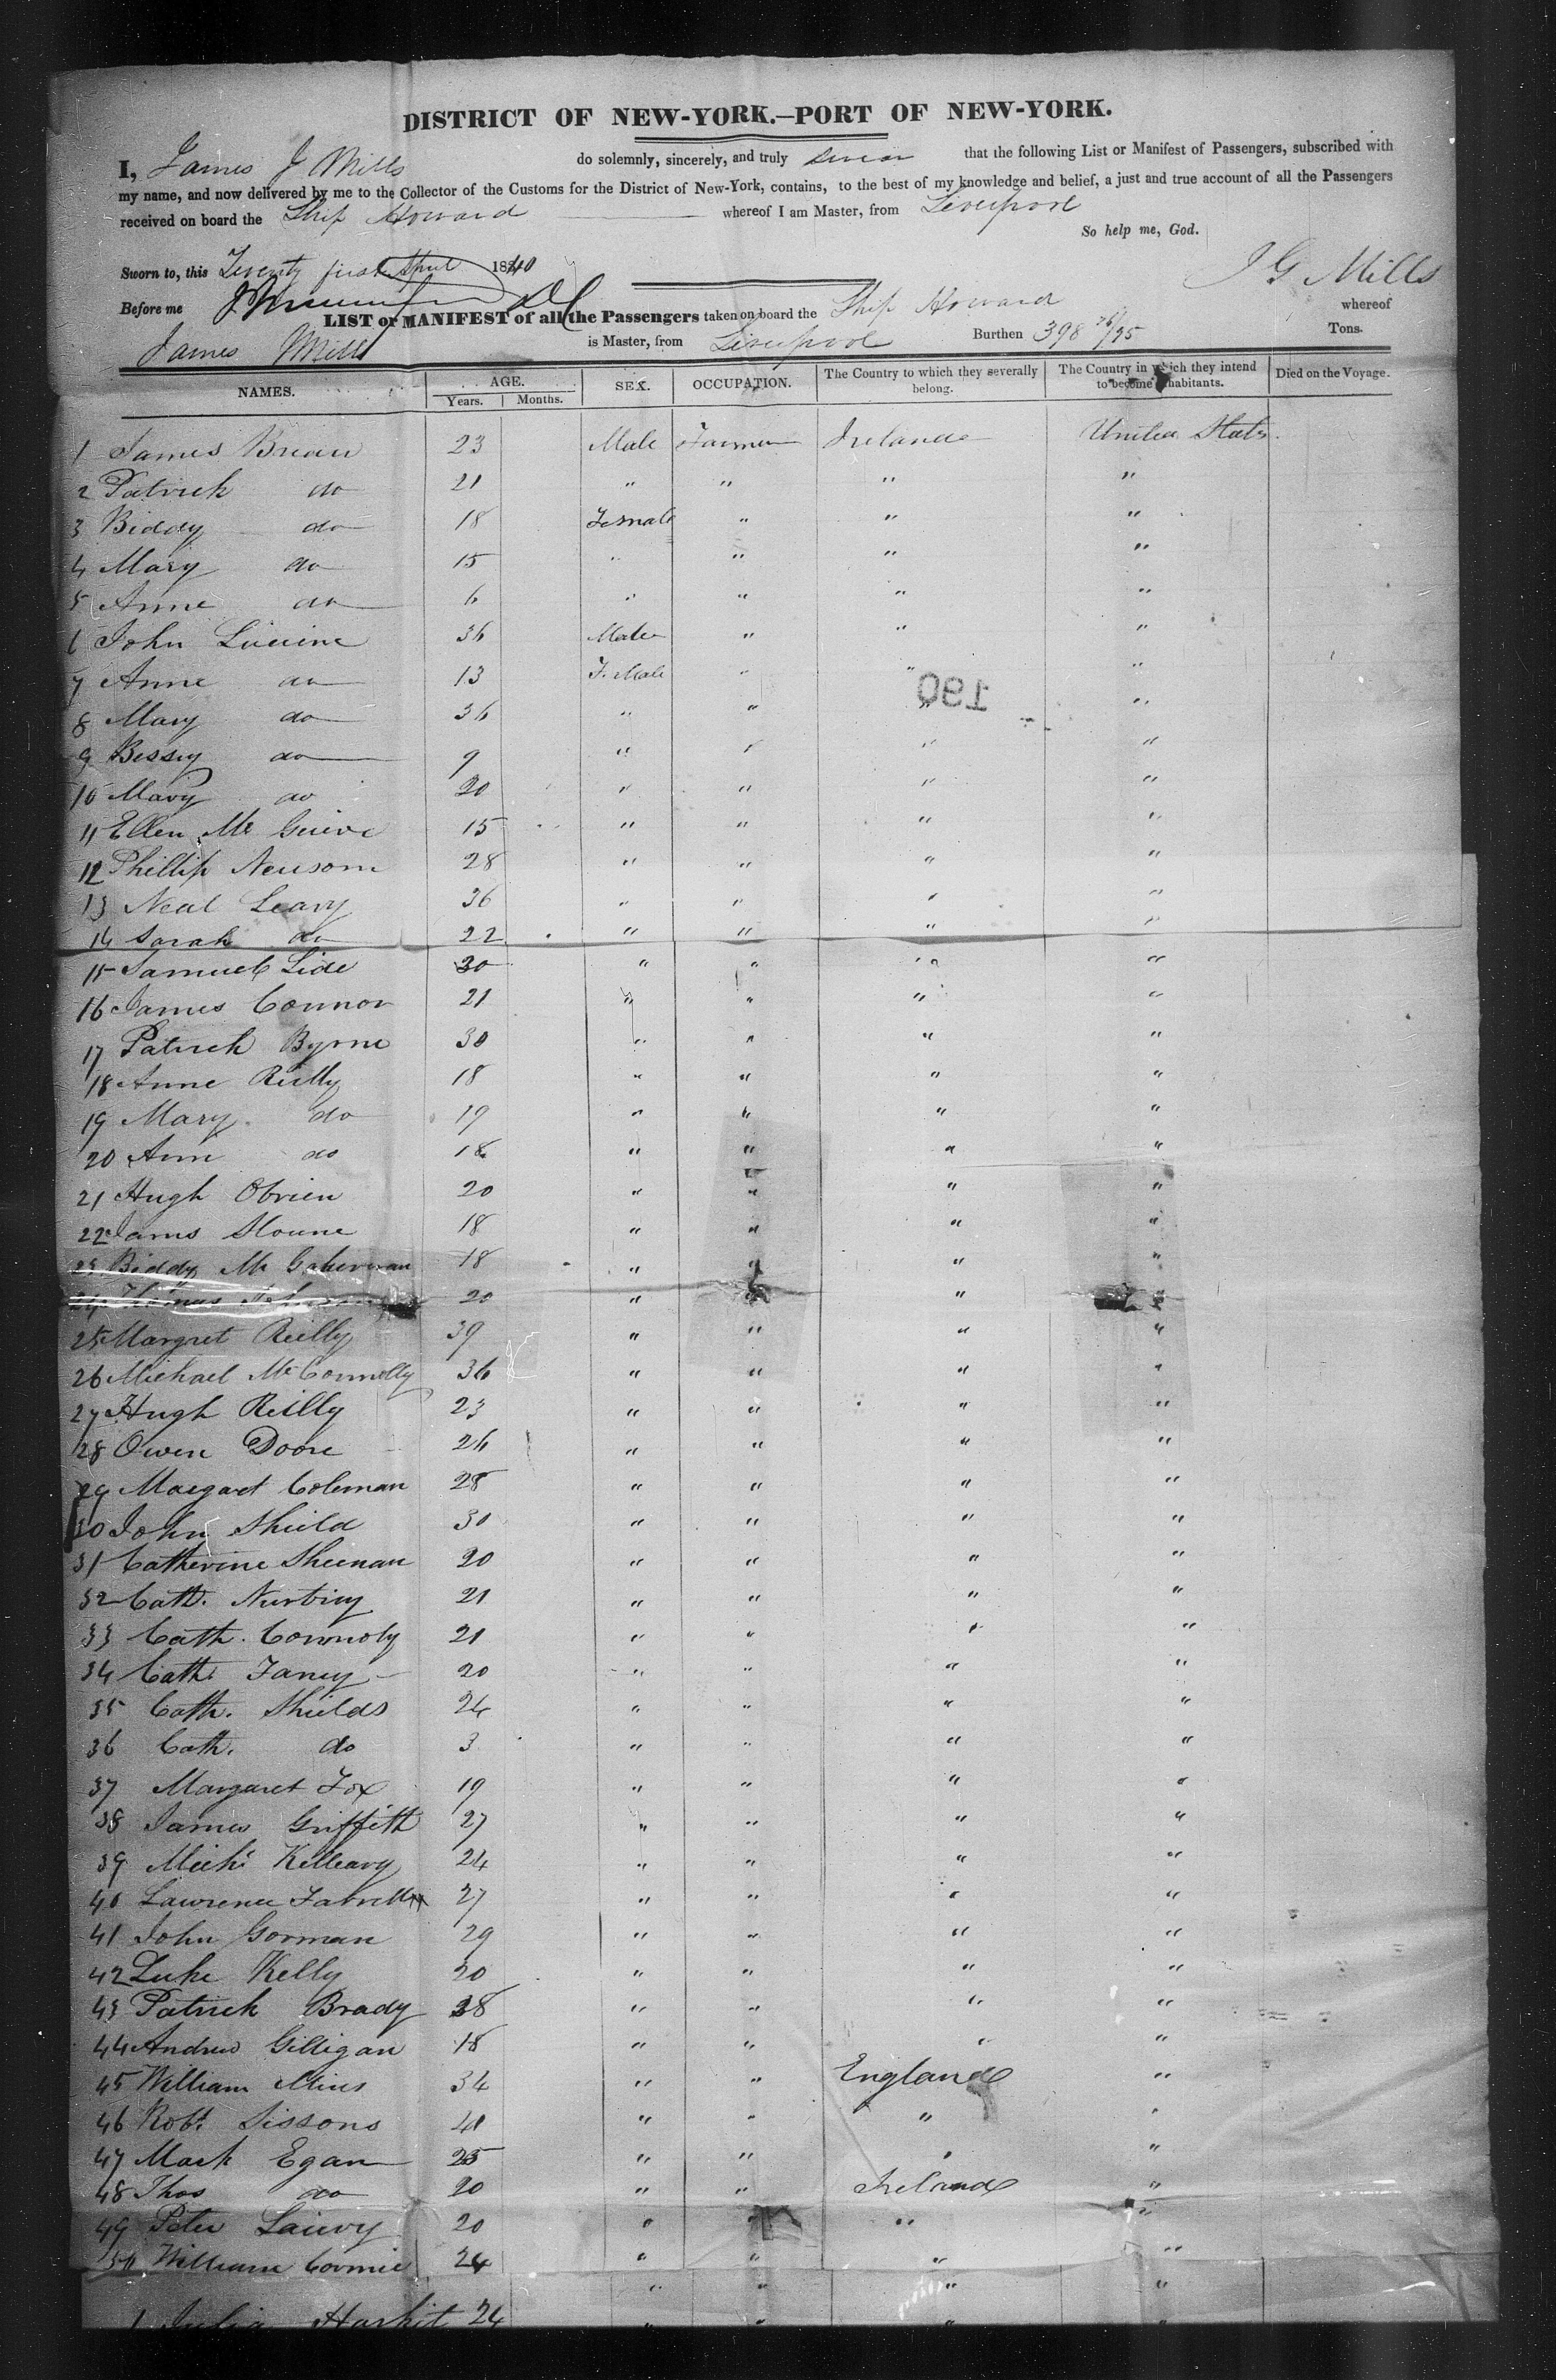 DISTRICT OF NEW-YORK.—PORT OF NEW-YORK.
I, James J Mills do solemnly, sincerely, and truly swear that the following List or Manifest of Passengers, subscribed with
my name, and now delivered by me to the Collector of the Customs for the District of New-York, contains, to the best of my knowledge and belief, a just and true account of all the Passengers
received on board the Ship Howard whereof I am Master, from Liverpool
So help me, God.
Sworn to, this Twenty first April 1840
J G Mills
Before me
LIST or MANIFEST of all the Passengers taken on board the Ship Howard whereof
James Mills is Master, from Liverpool Burthen 398 76/95 Tons.
NAMES. AGE. Years. Months. SEX. OCCUPATION. The Country to which they severally belong. The Country in which they intend to become inhabitants. Died on the Voyage.
1 James 23 Male Farmer Ireland United States.
2 Patrick do 21 " " " "
3 Biddy do 18 Female " " "
4 Mary do 15 " " " "
5 Anne do 6 " " " "
6 John 36 Male " " "
7 Anne do 13 F. Male " " "
190
8 Mary do 36 " " " "
9 Bessey do 9 " " " "
10 Mary do 20 " " " "
11 Ellen Mc 15 " " " "
12 Phillip Neusom 28 " " " "
13 Neal Leary 36 " " " "
14 Sarah do 22 " " " "
15 Samuel Lide 30 " " " "
16 James Connor 21 " " " "
17 Patrick Byrne 30 " " " "
18 Anne Reilly 18 " " " "
19 Mary do 19 " " " "
20 Ann do 18 " " " "
21 Hugh Obrien 20 " " " "
22 James 18 " " " "
23 Biddy Mc 18 " " " "
24 Thomas 20 " " " "
25 Margret Reilly 39 " " " "
26 Michael McConnolly 36 " " " "
27 Hugh Reilly 23 " " " "
28 Owen Doone 26 " " " "
29 Margaret Coleman 28 " " " "
30 John Shield 30 " " " "
31 Catherine Sheenan 20 " " " "
32 Cath. 21 " " " "
33 Cath. Connoly 21 " " " "
34 Cath. Faney 20 " " " "
35 Cath. Shields 24 " " " "
36 Cath. do 3 " " " "
37 Margaret Fox 19 " " " "
38 James Griffith 27 " " " "
39 Mich. Killeavy 24 " " " "
40 Lawrence 27 " " " "
41 John Gorman 29 " " " "
42 Luke Kelly 20 " " " "
43 Patrick Brady 38 " " " "
44 Andrew Gilligan 18 " " " "
45 William 34 " " England "
46 Robt. Sissons 41 " " " "
47 Mark Egan 25 " " " "
48 Thos do 20 " " Ireland "
49 Peter 20 " " " "
50 William 24 " " " "
" " " "
1 Julia 24 " " " "